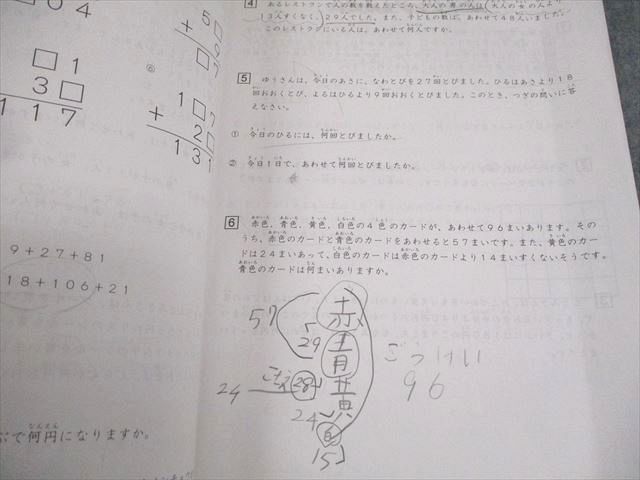 04
□1
3□
117
5
+
⑥
1□
+ 2□
131
9+27+81
18+106+21
で何円になりますか。
4
あるレストランで人の数を数えたところ、大人の男の人は大人の女の人より
13人すくなく、29人でした。また、子どもの数は、あわせて48人いました。
このレストランにいる人は、あわせて何人ですか。
5 ゆうさんは、今日のあさに、なわとびを27回とびました。ひるはあさより18
回おおくとび、よるはひるより9回おおくとびました。このとき、つぎの問いに答
えなさい。
① 今日のひるには、何回とびましたか。
② 今日1日で、あわせて何回とびましたか。
6 赤色、青色、黄色、白色の4色のカードが、あわせて96まいあります。その
うち、赤色のカードと青色のカードをあわせると57まいです。また、黄色のカー
ドは24まいあって、白色のカードは赤色のカードより14まいすくないそうです。
青色のカードは何まいありますか。
57
赤
29
青
ごうけい
96
24
28
黄
24
白
15